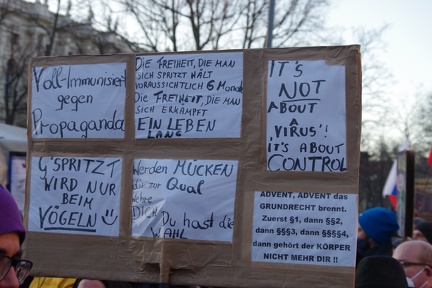 Voll-Immunisiert
gegen
Propaganda
DIE FREIHEIT, DIE MAN
SICH SPRITZT HÄLT
VORAUSSICHTLICH 6 Monate
DIE FREIHEIT, DIE MAN
SICH ERKÄMPFT
EIN LEBEN
LANG
IT'S
NOT
ABOUT
A
VIRUS'!
IT'S ABOUT
CONTROL
G'SPRITZT
WIRD NUR
BEIM
VÖGELN
Werden MÜCKEN
zur Qual
DICH Du hast die
WAHL
ADVENT, ADVENT das
GRUNDRECHT brennt.
Zuerst §1, dann §§2,
dann §§§3, dann §§§§4,
dann gehört der KÖRPER
NICHT MEHR DIR !!